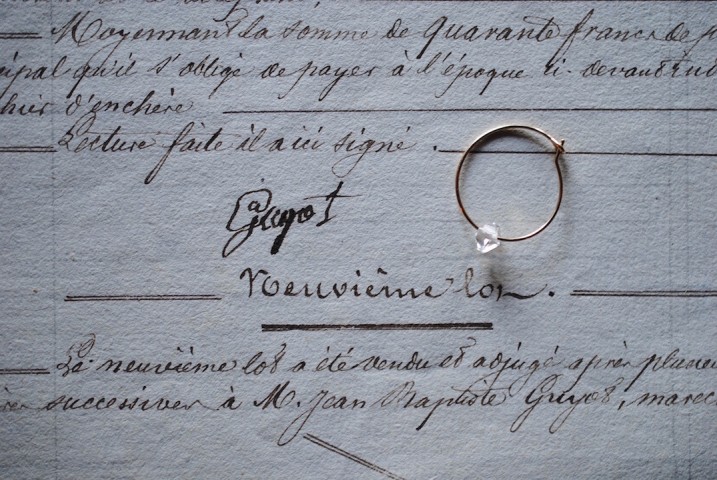 Moyennant la somme de quarante francs de
cipal qu'il s'oblige de payer à l'époque ci-devant
hier d'enchère
Lecture faite il a ici signé.
Guyot
Neuvième lot.
Le neuvième lot a été vendu et adjugé après plusieu
successives à M. Jean Baptiste Guyot, marec